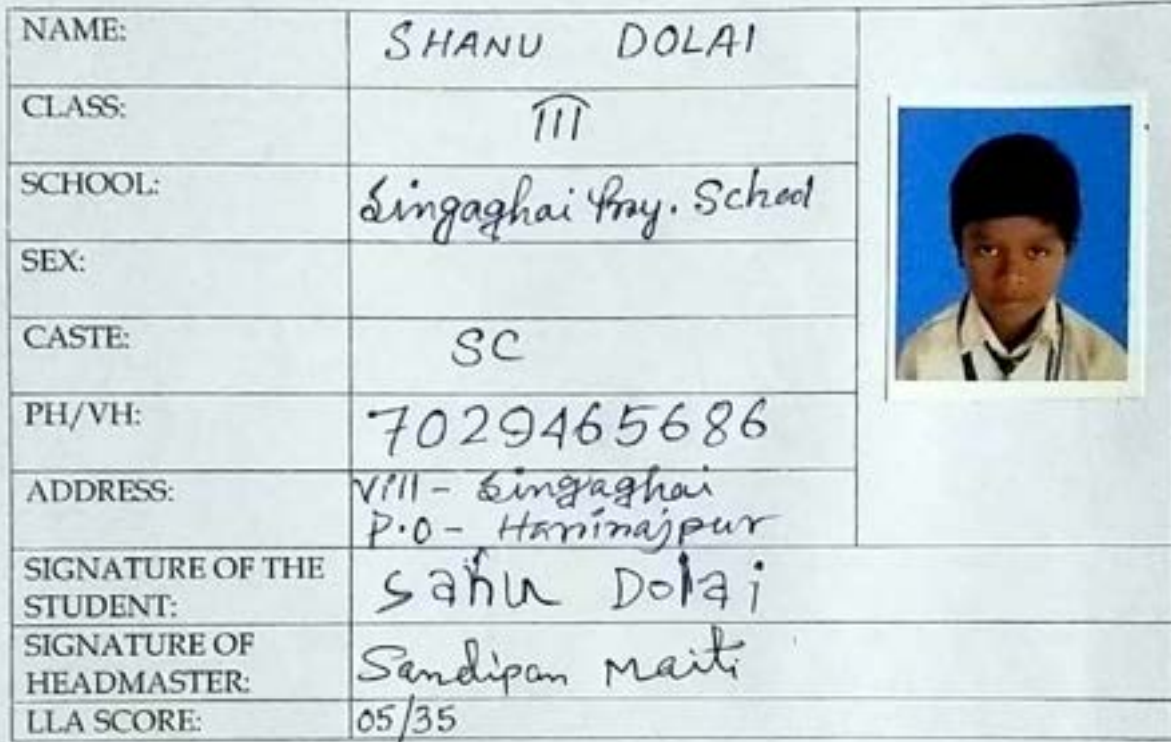 NAME: SHANU DOLAI
CLASS: III
SCHOOL: Singaghai Pry. School
SEX:
CASTE: SC
PH/VH: 7029465686
ADDRESS: Vill - Singaghai
P.O - Harinajpur
SIGNATURE OF THE STUDENT: Sahu Dolai
SIGNATURE OF HEADMASTER: Sandipan Maiti
LLA SCORE: 05/35